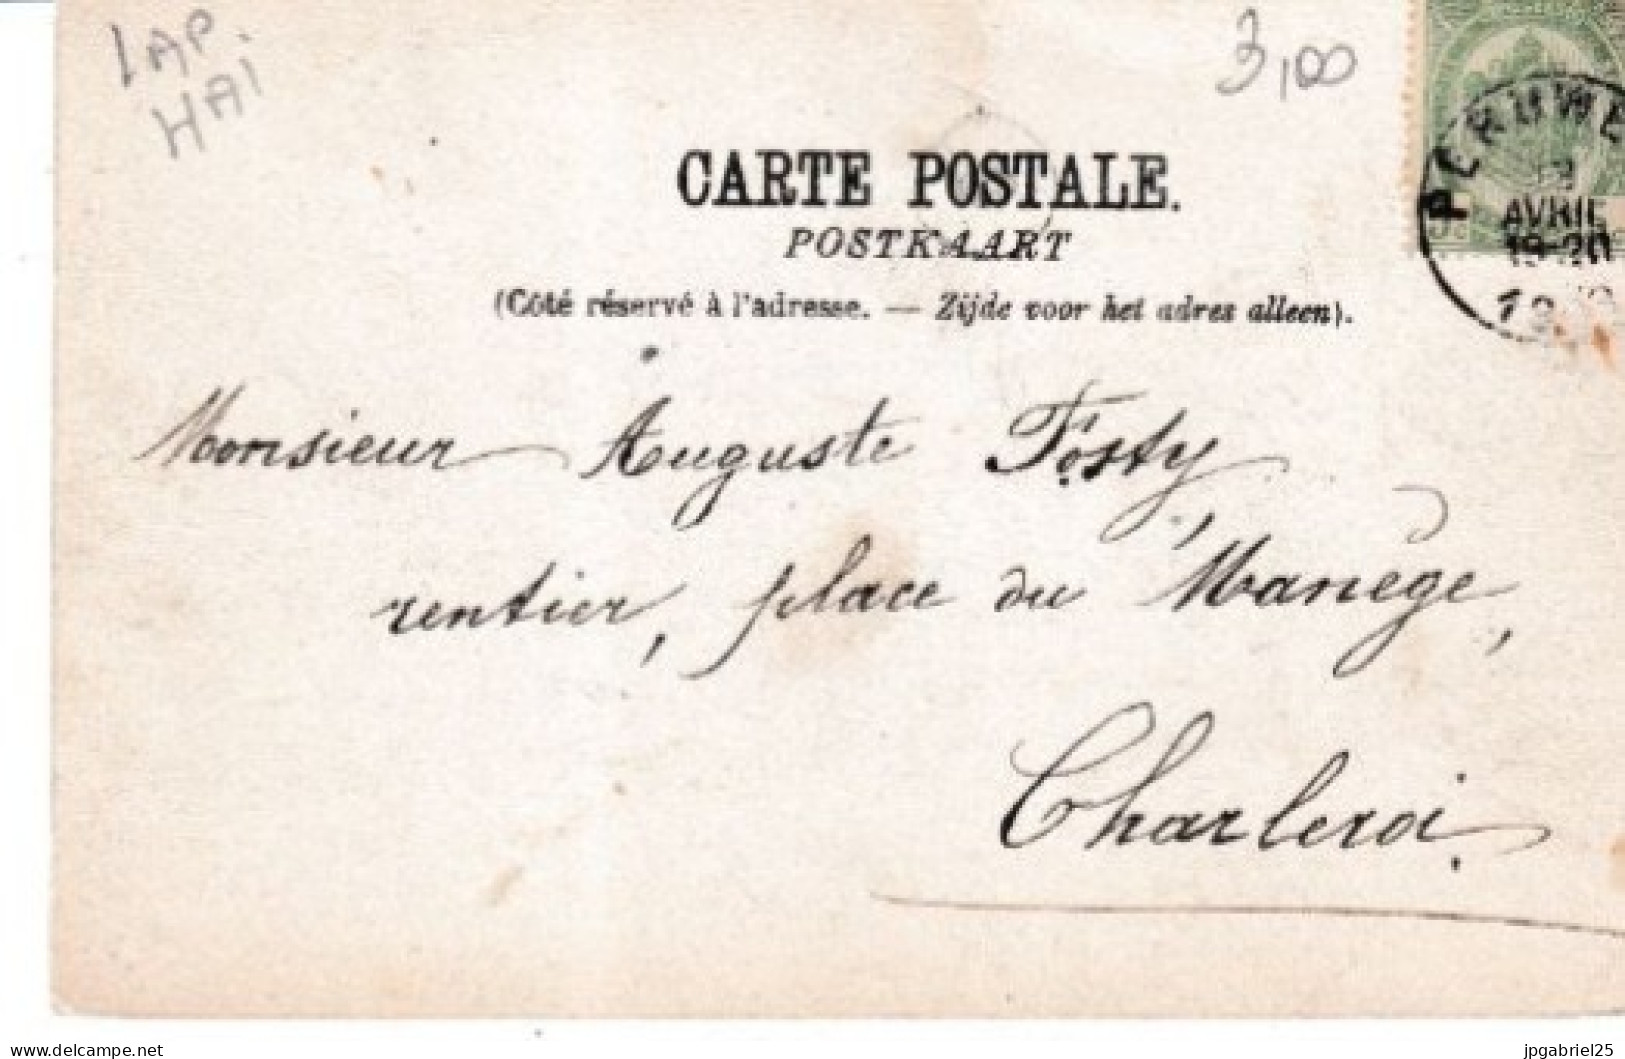 LAP.
HAI
3,00
CARTE POSTALE.
POSTKAART
(Côté réservé à l'adresse. — Zijde voor het adres alleen).
PERUWE
AVRIL
19-20
Monsieur Auguste Fosty,
rentier, place du Manège,
Charleroi.
delcampe.net
jpgabriel25